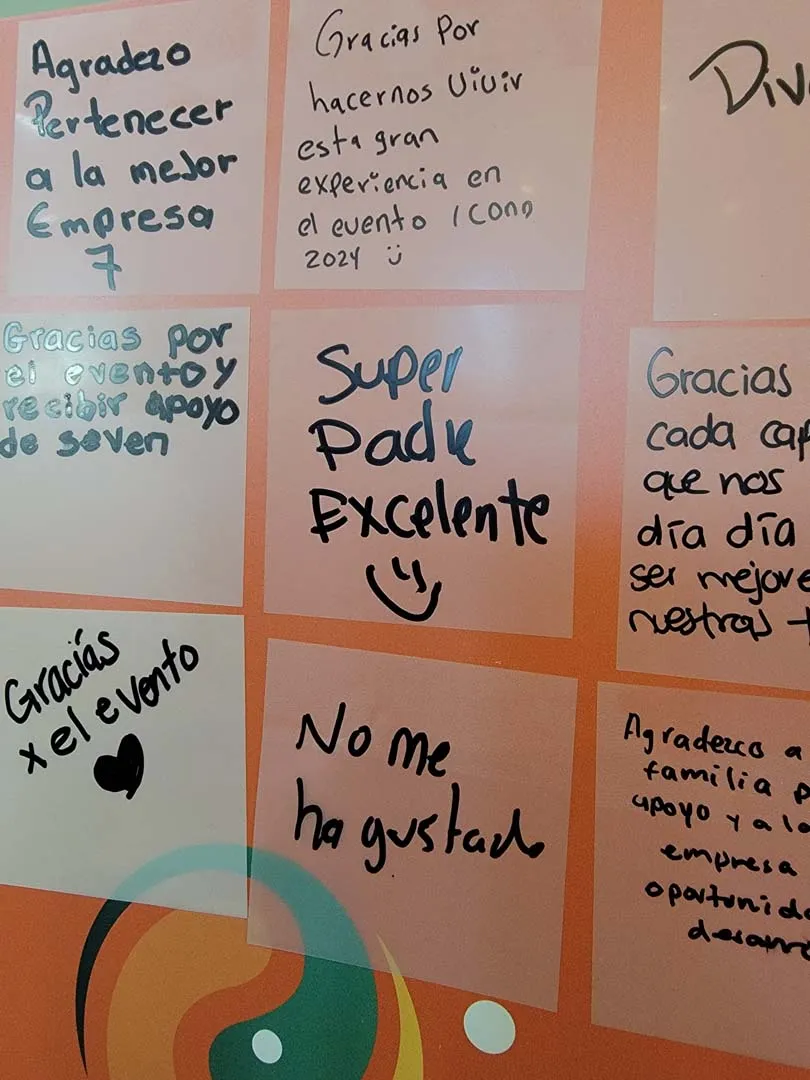 Agradezo
Pertenecer
a la mejor
Empresa
7
Gracias Por
hacernos Vivir
esta gran
experiencia en
el evento ICONO
2024
Gracias por
el evento y
recibir apoyo
de seven
Super
Padre
Excelente
Gracias
cada
que nos
día día
ser
nuestras
Gracias
x el evento
No me
ha gustado
Agradezco a
familia
apoyo y a la
empresa